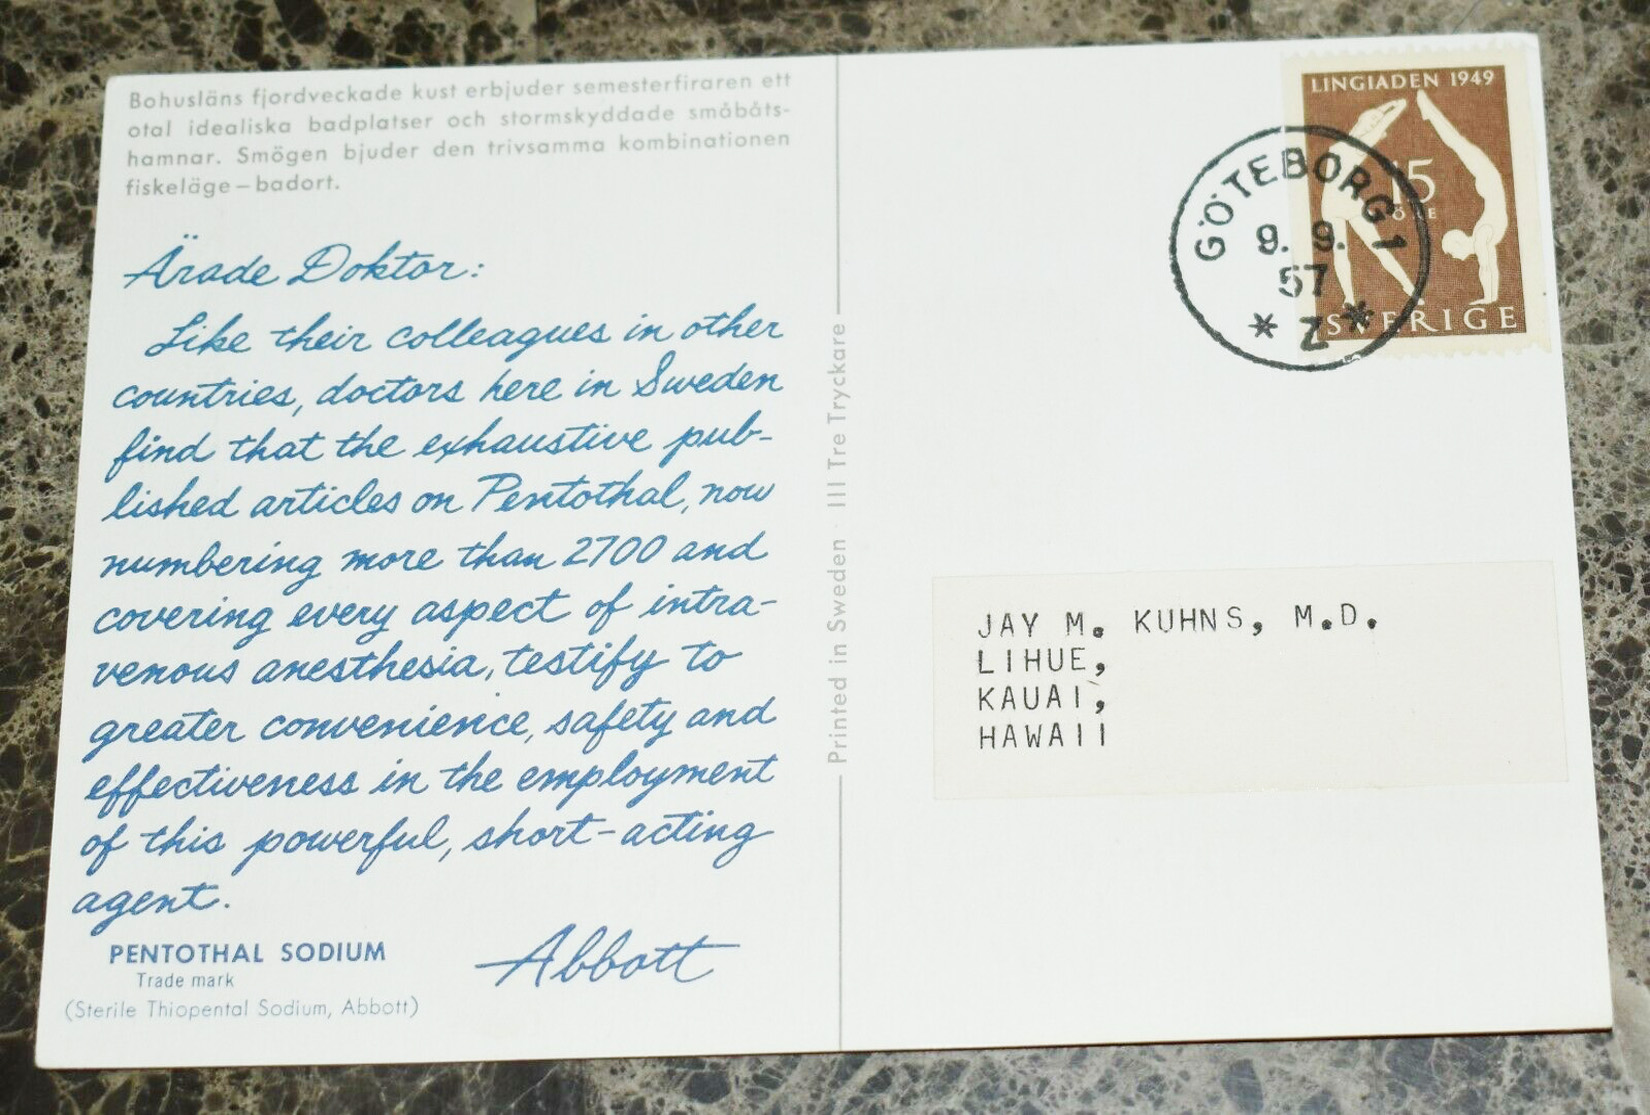 Bohusläns fjordveckade kust erbjuder semesterfiraren ett
otal idealiska badplatser och stormskyddade småbåts-
hamnar. Smögen bjuder den trivsamma kombinationen
fiskeläge – badort.
Ärade Doktor:
Like their colleagues in other
countries, doctors here in Sweden
find that the exhaustive pub-
lished articles on Pentothal, now
numbering more than 2700 and
covering every aspect of intra-
venous anesthesia, testify to
greater convenience, safety and
effectiveness in the employment
of this powerful, short-acting
agent.
Abbott
PENTOTHAL SODIUM
Trade mark
(Sterile Thiopental Sodium, Abbott)
Printed in Sweden · Ill Tre Tryckare
LINGIADEN 1949
15
ÖRE
SVERIGE
GÖTEBORG 1
9. 9.
57
* Z *
JAY M. KUHNS, M.D.
LIHUE,
KAUAI,
HAWAII